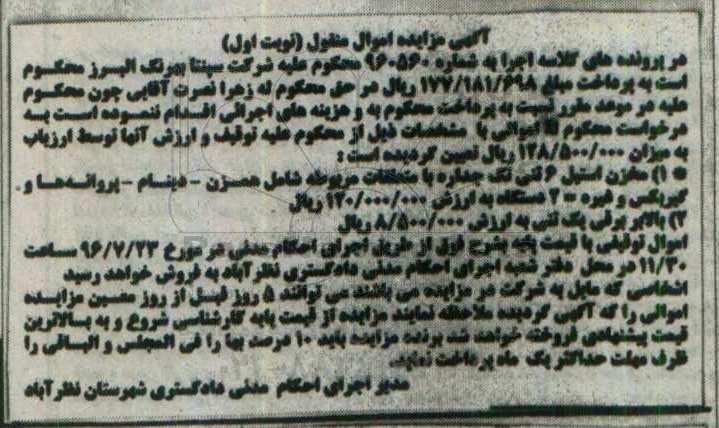 آگهی مزایده اموال منقول (نوبت اول)
در پرونده های کلاسه اجرا به شماره ۹۶۰۵۶۰ محکوم علیه شرکت سپنتا بهرنگ البرز محکوم
است به پرداخت مبلغ ۱۷۷/۱۸۱/۶۹۸ ریال در حق محکوم له زهرا نصرت آقایی چون محکوم
علیه در موعد مقرر نسبت به پرداخت محکوم به و هزینه های اجرائی اقدام ننموده است به
درخواست محکوم له اموالی با مشخصات ذیل از محکوم علیه توقیف و ارزش آنها توسط ارزیاب
به میزان ۱۲۸/۵۰۰/۰۰۰ ریال تعیین گردیده است :
۱) مخزن استیل ۶ تنی تک جداره با متعلقات مربوطه شامل همزن - دینام - پروانه‌ها و
گیربکس و غیره ۲ دستگاه به ارزش ۱۲۰/۰۰۰/۰۰۰ ریال
۲) بالابر برقی یک تنی به ارزش ۸/۵۰۰/۰۰۰ ریال
اموال توقیفی با قیمت پایه بشرح فوق از طریق اجرای احکام مدنی در مورخ ۹۶/۷/۲۳ ساعت
۱۱/۳۰ در محل دفتر شعبه اجرای احکام مدنی دادگستری نظرآباد به فروش خواهد رسید
اشخاصی که مایل به شرکت در مزایده می باشند می توانند ۵ روز قبل از روز معین مزایده
اموالی را که آگهی گردیده ملاحظه نمایند مزایده از قیمت پایه کارشناسی شروع و به بالاترین
قیمت پیشنهادی فروخته خواهد شد برنده مزایده باید ۱۰ درصد بها را فی المجلس و الباقی را
ظرف مهلت حداکثر یک ماه پرداخت نماید.
مدیر اجرای احکام مدنی دادگستری شهرستان نظرآباد